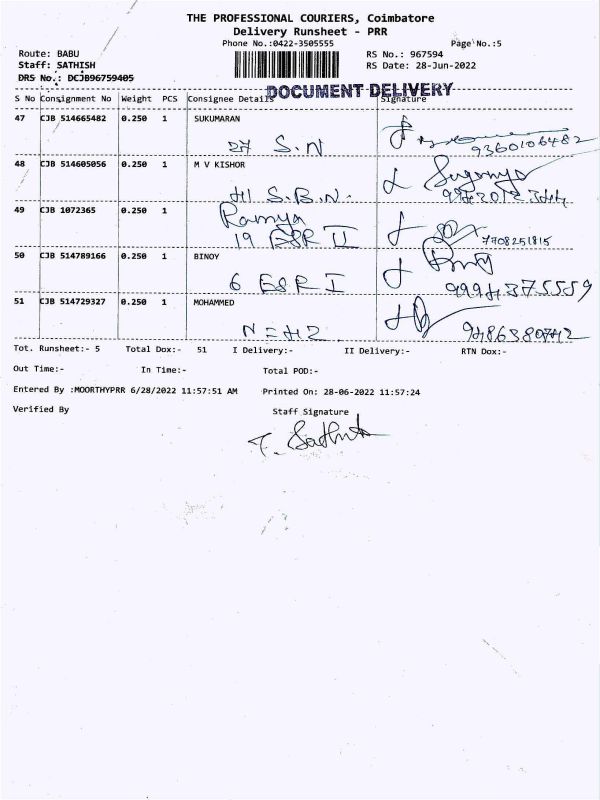 THE PROFESSIONAL COURIERS, Coimbatore
Delivery Runsheet - PRR
Phone No.:0422-3505555 Page No.:5
Route: BABU RS No.: 967594
Staff: SATHISH RS Date: 28-Jun-2022
DRS No.: DCJB96759405
DOCUMENT DELIVERY
S No Consignment No Weight PCS Consignee Details Signature
47 CJB 514665482 0.250 1 SUKUMARAN
27 S.N 9360106482
48 CJB 514605056 0.250 1 M V KISHOR
41 S.B.N.
49 CJB 1072365 0.250 1 Ramya
19 ESR II 7708251815
50 CJB 514789166 0.250 1 BINOY
6 ESR I 9994375559
51 CJB 514729327 0.250 1 MOHAMMED
N=42 9486380742
Tot. Runsheet:- 5 Total Dox:- 51 I Delivery:- II Delivery:- RTN Dox:-
Out Time:- In Time:- Total POD:-
Entered By :MOORTHYPRR 6/28/2022 11:57:51 AM Printed On: 28-06-2022 11:57:24
Verified By Staff Signature
T. Sathish